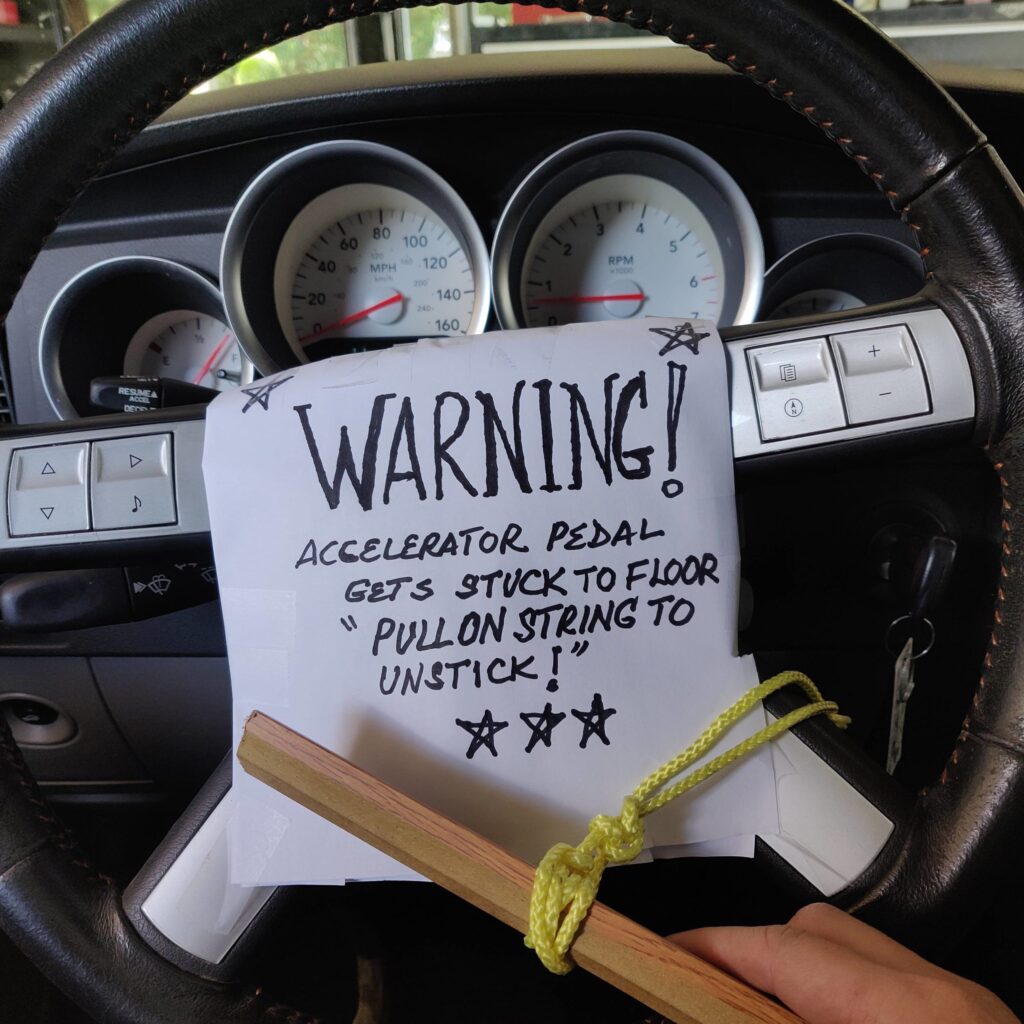 20 40 60 80 100 120 140 160
MPH
km/h
0
1 2 3 4 5 6 7
RPM
×1000
E ½ F
RESUME▲
ACCEL
WARNING!
ACCELERATOR PEDAL
GETS STUCK TO FLOOR
"PULL ON STRING TO
UNSTICK!"